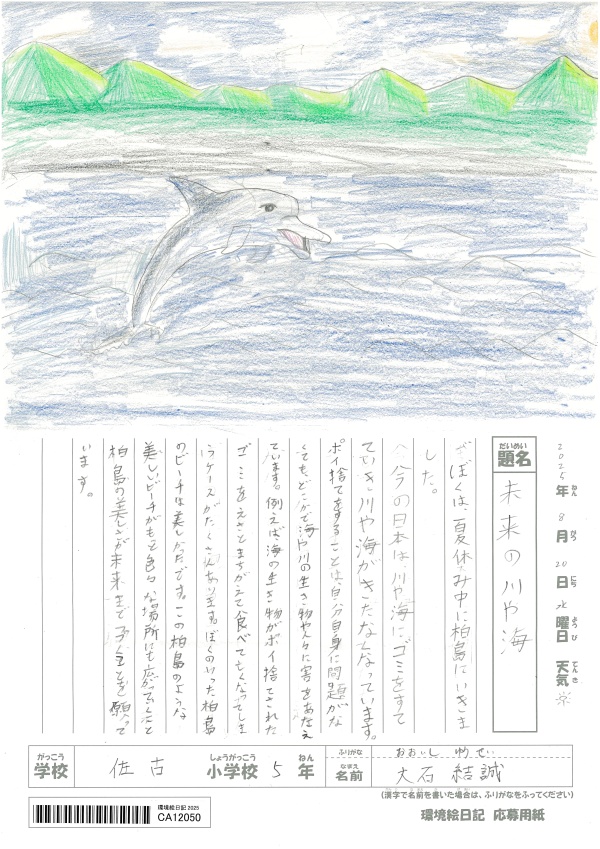 2025年ねん 8月がつ 20日にち 水曜日ようび 天気てんき
だいめい
題名 未来の川や海
ぼくは、夏休み中に柏島にいきま
した。
今の日本は川や海にゴミをすて
ていき川や海がきたなくなっています。
ポイ捨てをすることは、自分自身に問題がな
くてもどこかで海や川の生き物や人々に害をあたえ
ています。例えば、海の生き物がポイ捨てされた
ゴミをえさとまちがえて食べて亡くなってしま
うケースがたくさんあります。ぼくのいった柏島
のビーチは美しかったです。この柏島のような
美しいビーチがもっと色々な場所にも広がっていくことと
柏島の美しさが未来まで続くことを願って
います。
がっこう しょうがっこう ねん ふりがな おおいし ゆうせい
学校 佐古 小学校 5年 なまえ 名前 大石 結誠
(漢字で名前を書いた場合は、ふりがなをふってください)
環境絵日記 2025
CA12050
環境絵日記 応募用紙